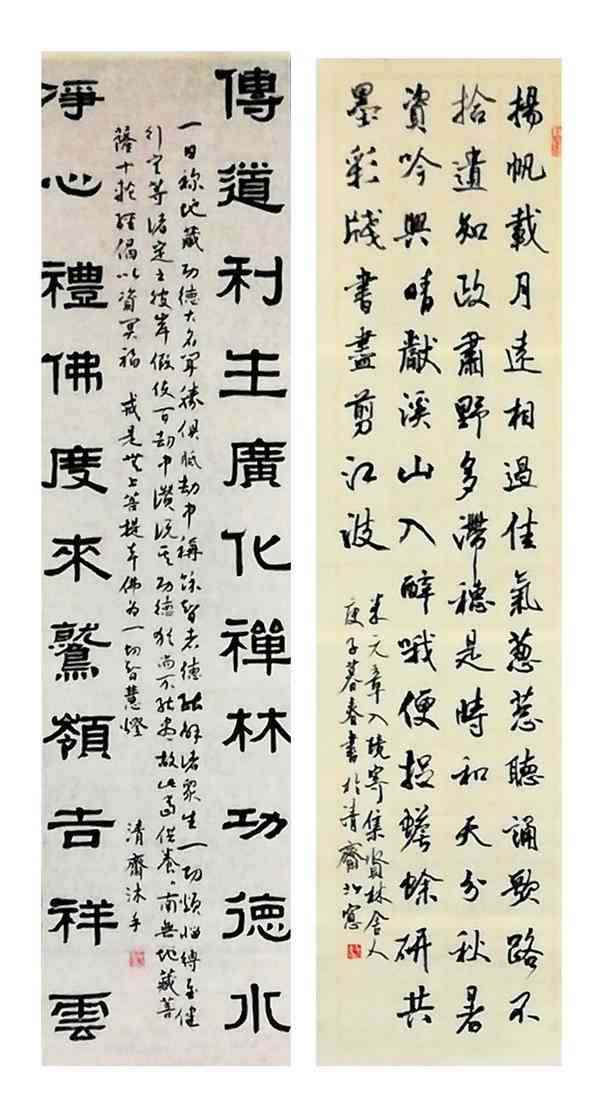 揚帆載月遠相過佳氣蔥蔥聽誦歌路不
拾遺知政肅野多滯穗是時和天分秋暑
資吟興晴獻溪山入醉哦便捉蟾蜍研共
墨彩牋書盡剪江波
米元章入境寄集賢林舍人
庚子暮春書於清齋北窗
傳道利生廣化禪林功德水
一日稱地藏功德大名聞勝俱胝劫中稱餘智者德能解諸眾生一切煩惱縛至健
行定等諸定之彼岸假使百劫中讚說其功德猶尚不能盡故皆當供養南無地藏菩
薩十輪經偈以資冥福 戒是無上菩提本佛為一切智慧燈
清齋沐手
淨心禮佛度來鷲嶺吉祥雲